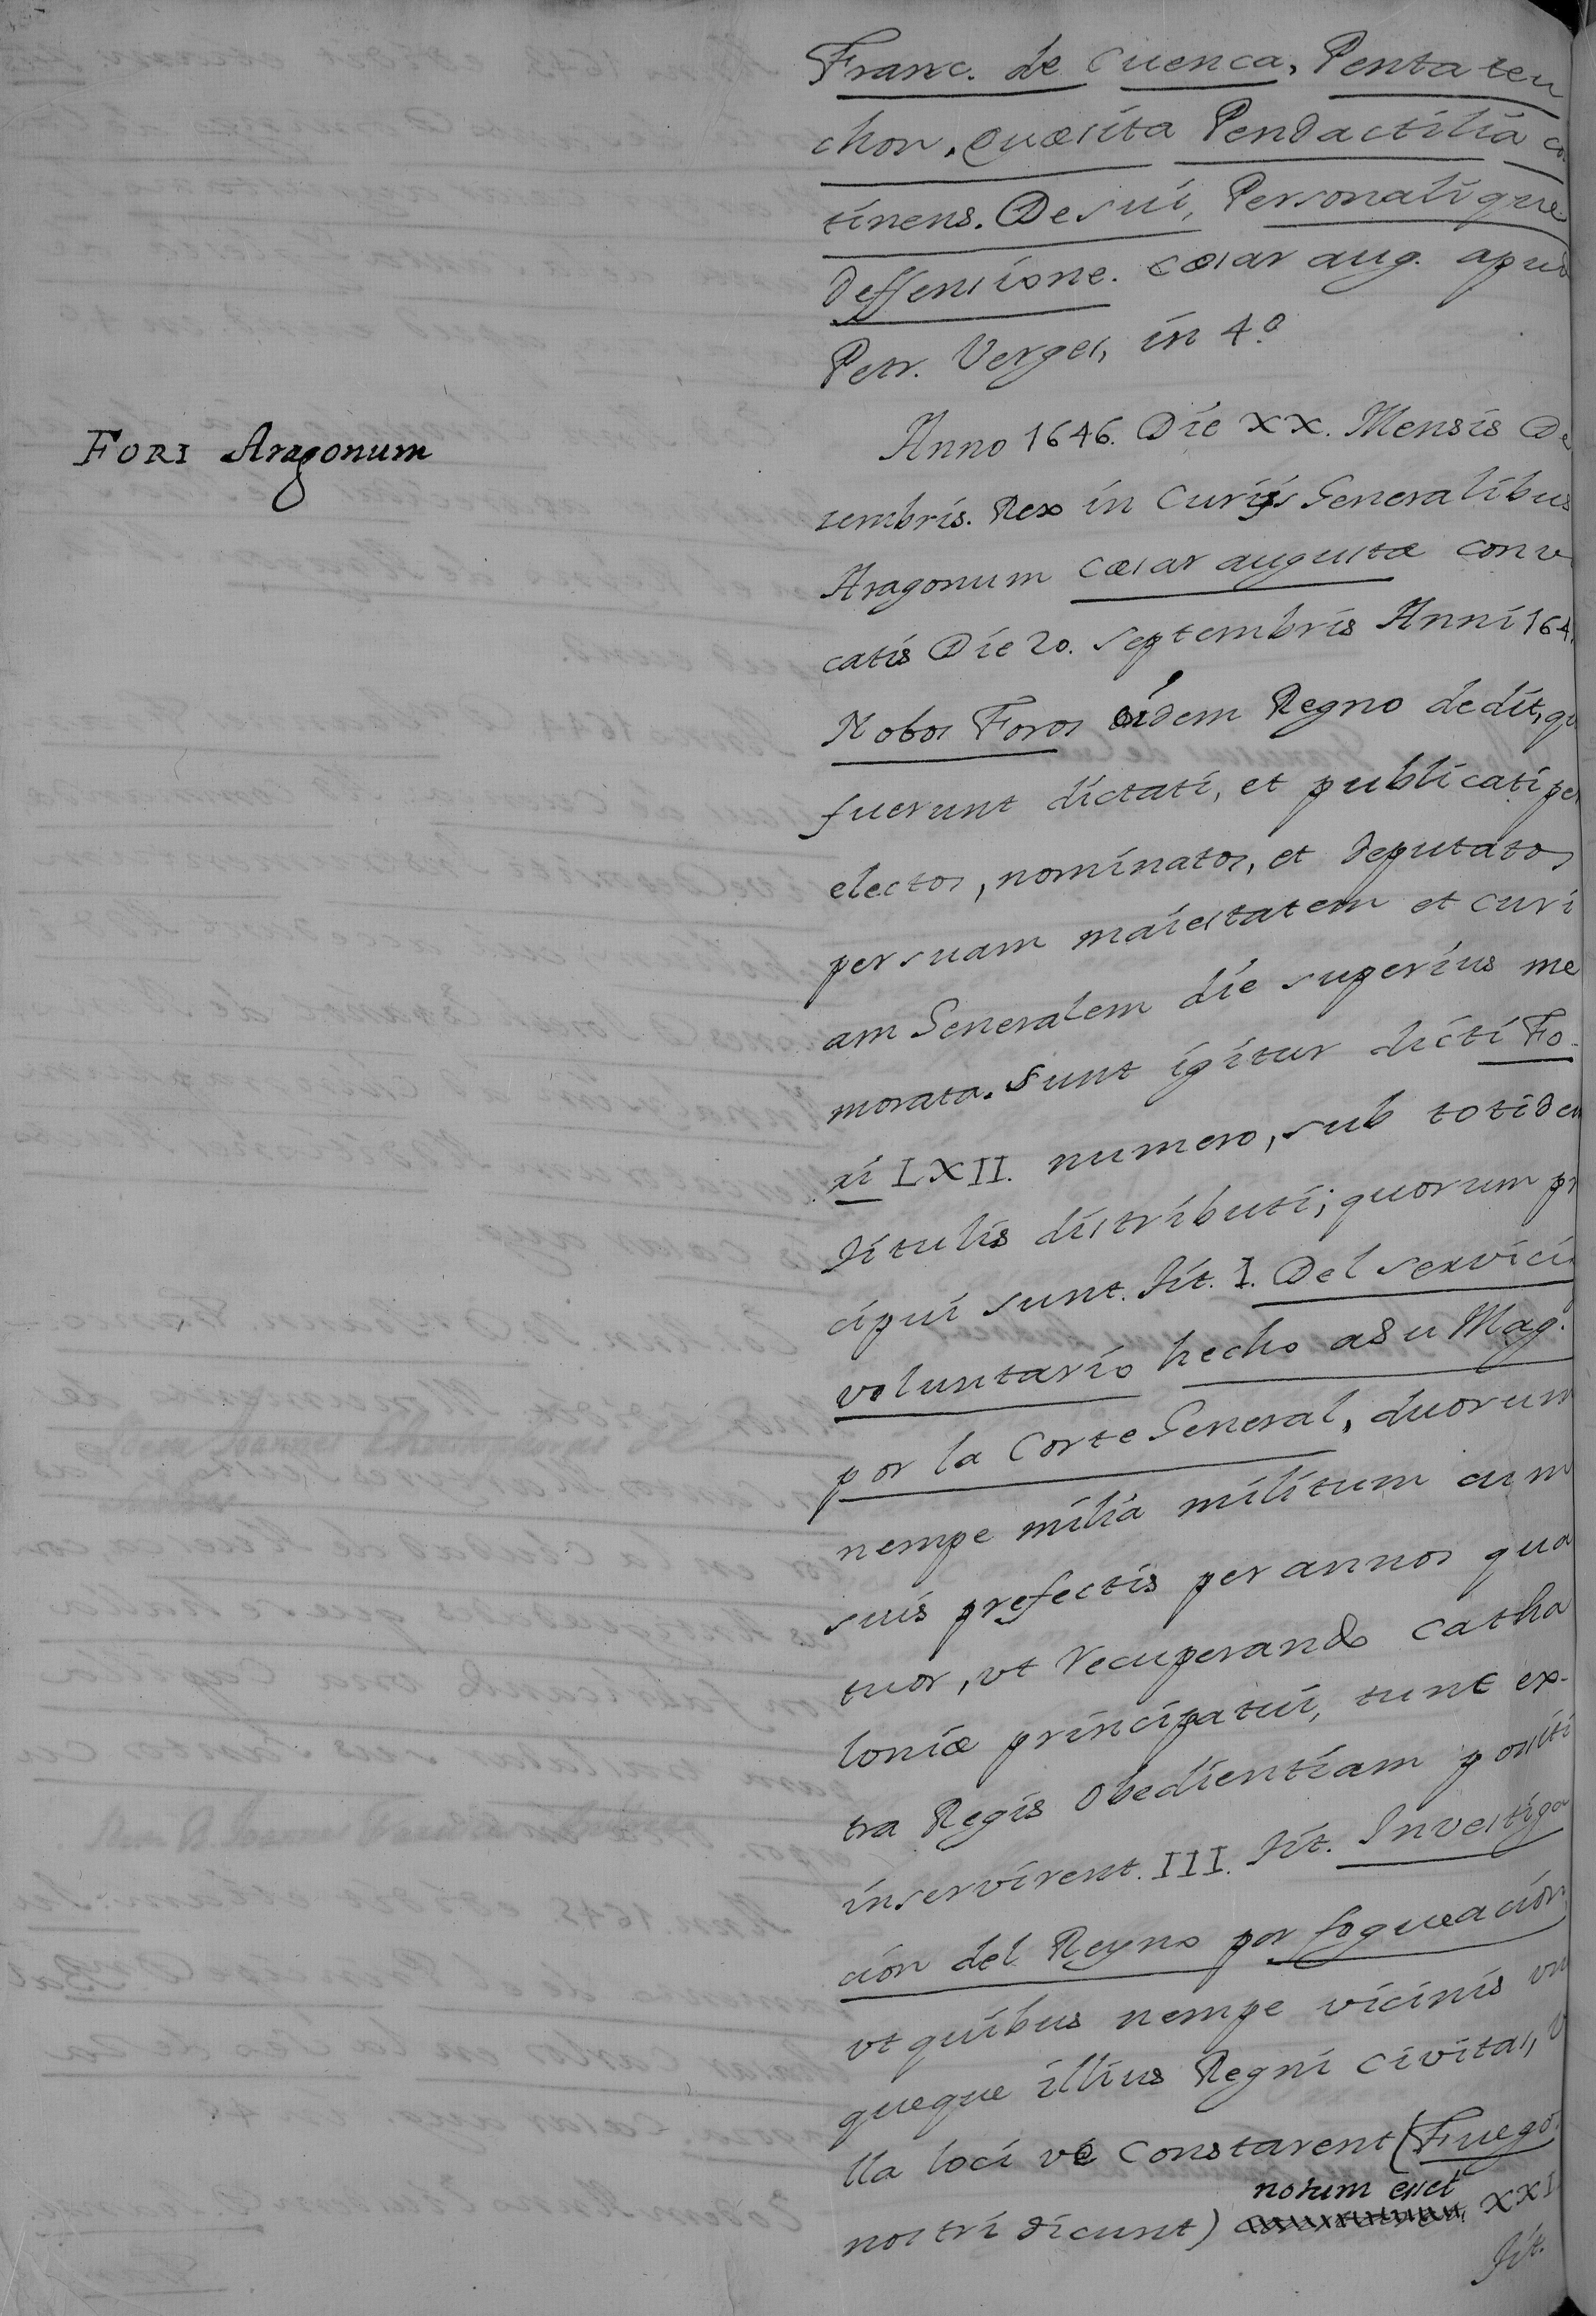 Franc. de Cuenca, Pentateu
chon, Quæsita Pendactilia co
tinens. De sui, Personalique
deffensione. Cæsar aug. apud
Petr. Verges, in 4.º
FORI Aragonum
Anno 1646. Die XX. Mensis De
zembris. Rex in Curijs Generalibus
Aragonum Cæsar augustæ conv
catis Die 20. Septembris Anni 164
Nobos Foros eidem Regno dedit, qu
fuerunt dictati, et publicati per
electos, nominatos, et deputatos
per suam maiestatem et curi
am Generalem die superius me
morata. Sunt igitur dicti Fo-
ri LXII. numero, sub totidem
titulis distributi; quorum pr
cipui sunt. Tit. I. Del servici
voluntario hecho a Su Mag.
por la Corte General, duorum
nempe milia militum cum
suis prefectis per annos qua
tuor, vt recuperando Catha
loniæ principatui, tunc ex-
tra Regis obedientiam positi
inservirent. III. Tit. Investiga
ción del Reyno por fogueación,
vt quibus nempe vicinis vn
queque illius Regni Civitas, v
lla loci vè constarent (Fuego
nostri dicunt) notum esset XXI
Tit.